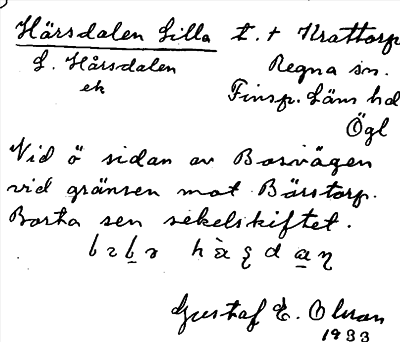 Hårsdalen Lilla t. + Krattorp
L. Hårsdalen Regna sn.
ek Finsp. läns hd
Ögl
Vid ö sidan av Bosvägen
vid gränsen mot Bårstorp.
Borta sen sekelskiftet.
Gustaf E. Olsson
1933